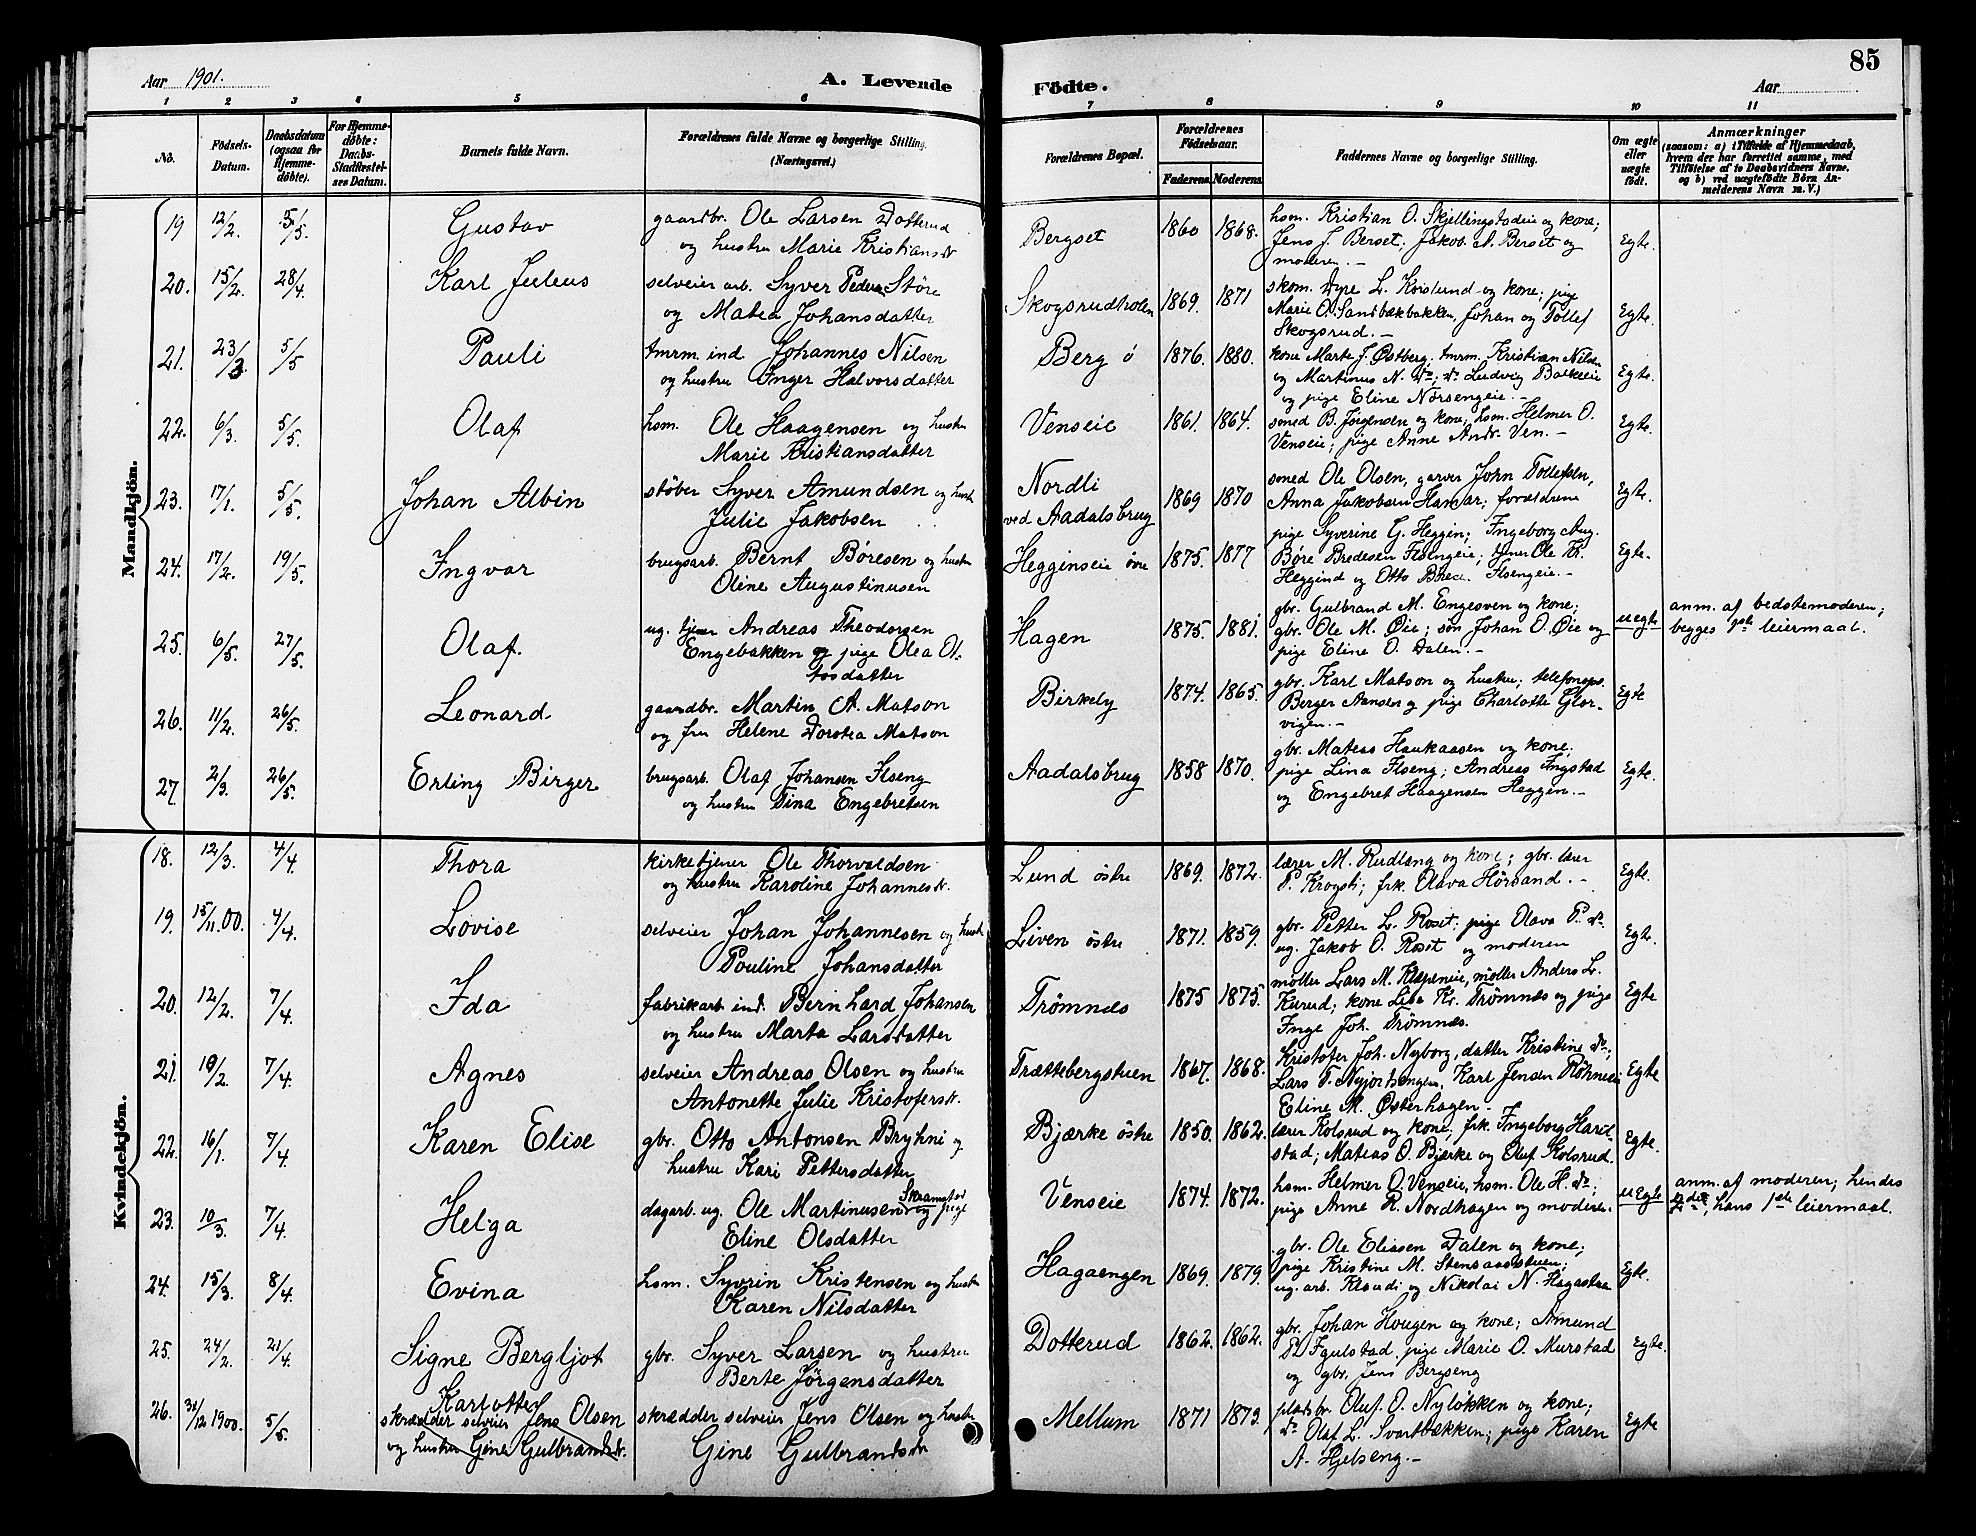 Aar 1901.
A. Levende
Födte.
Aar
85
1 2 3 4 5 6
7 8 9 10 11
No.
Födsels-
Datum.
Daabsdatum
(ogsaa for
Hjemme-
döbte).
For Hjemme-
döbte:
Daabs-
Stadfæstel-
ses Datum.
Barnets fulde Navn.
Forældrenes fulde Navne og borgerlige Stilling.
(Næringsvei.)
Forældrenes Bopæl.
Forældrenes
Födselsaar.
Faderens. Moderens.
Faddernes Navne og borgerlige Stilling.
Om ægte
eller
uægte
födt.
Anmærkninger
(saasom: a) i Tilfælde af Hjemmedaab,
hvem der har forrettet samme, med
Tilföielse af to Daabsvidners Navne,
og b) ved uægtefödte Börn An-
melderens Navn m. V.)
Mandkjön.
19 12/2. 5/5. Gustav gaardbr. Ole Larsen Dotterud
og hustru Marie Kristiansdt
Bergset 1860 1868. hsm. Kristian O. Skjellingstadeie og kone;
Jens J. Berset; Jakob A. Berset og
moderen. —
Egte.
20. 15/2. 28/4. Karl Julius selveier arb. Syver Peders. Støre
og Matea Johansdatter
Skogsrudholen 1869. 1871 skom. Dyre L. Kvislund og kone; pige
Marie O. Sandbækbakken, Johan og Tollef
Skogsrud. —
Egte.
21. 23/3. 5/5 Pauli tmrm. ind Johannes Nilsen
og hustru Inger Halvorsdatter
Berg ö 1876. 1880. kone Marte J. Østberg. tmrm. Kristian Nils.
og Martinus N. do; do Ludvig Bakkeeie
og pige Eline Norsengeie. —
Egte.
22. 6/3. 5/5. Olaf hsm. Ole Haagensen og hustru
Marie Kristiansdatter
Venseie 1861. 1864. smed B. Jørgensen og kone; hsm. Helmer O.
Venseie; pige Anne Andr. Ven. —
Egte.
23. 17/1. 5/5. Johan Albin støber Syver Amundsen og hust
Julie Jakobsen
Nordli
ved Aadalsbrug 1869 1870 smed Ole Olsen, garver John Tollefsen,
Anna Jakobsen Hamar; forældrene
Egte.
24. 17/2. 19/5. Ingvar brugsarb. Bernt Børesen og hustru
Oline Augustinusen
Hegginseie övre 1875. 1877 pige Syverine G. Heggin; Ingeborg Aug.
Børe Bredesen Ilsengeie; tjener Ole Kr.
Heggind og Otto Bred. Ilsengeie. —
Egte.
25. 6/5. 27/5. Olaf. ug. tjener Andreas Theodorsen
Engebakken og pige Olea Ol-
tosdatter
Hagen 1875. 1881. gbr. Gulbrand M. Engesven og kone;
gbr. Ole M. Øie; søn Johan O. Øie og
pige Eline O. Dalen. —
uegte anm. af bedstemoderen;
begges 1ste leiermaal.
26. 11/2. 26/5. Leonard. gaardbr. Martin A. Matson
og fru Helene Dorotea Matson
Birkely 1874. 1865. gbr. Karl Matson og hustru; telefonops.
Berger Aansen og pige Charlotte Glor-
vigen. —
Egte
27 2/3. 26/5. Erling Birger brugsarb. Olaf Johansen Ilseng
og hustru Tina Engebretsen
Aadalsbrug 1858 1870. gbr. Mateas Haukaasen og kone;
pige Lina Ilseng; Andreas Ingstad
og Engebret Haagensen Heggen. —
Egte.
Kvindekjön.
18. 12/3. 4/4. Thora kirketjener Ole Thorvaldsen
og hustru Karoline Johannesdt.
Lund östre 1869. 1872. lærer M. Rudlang og kone; gbr. lærer
P. Krogsti; frk. Olava Hörsand. —
Egte.
19. 15/11.00. 4/4. Lovise selveier Johan Johannesen og hust
Pouline Johansdatter
Liven östre 1871. 1859. gbr. Petter L. Roset; pige Olava P. do.
ug. Jakob O. Roset og moderen
Egte.
20. 12/2. 7/4. Ida fabrikarb ind. Bernhard Johansen
og hustru Marta Larsdatter
Trömnes 1875 1875. møller Lars M. Klæpeneie, møller Anders L.
Kurud; kone Lisa Kr. Trömnæs og pige
Inge Joh. Trömnæs.
Egte
21. 10/2. 7/4. Agnes selveier Andreas Olsen og hustru
Antonette Julie Kristofersdt.
Trættebergstuen 1867. 1868. Kristofer Joh. Nyborg, datter Kristine do;
Lars T. Nyjordsengen, Karl Jensen Röhneie
Eline M. Österhagen —
Egte
22. 16/1. 7/4. Karen Elise gbr. Otto Antonsen Bryhni og
hustru Kari Pettersdatter
Bjærke östre 1850. 1862. lærer Kolsrud og kone; frk. Ingeborg Hard-
stad; Mateas O. Bjærke og Oluf Kolsrud.
Egte.
23. 10/3. 7/4. Helga dagarb. ug. Ole Martinusen Skramstad og pige
Eline Olsdatter
Venseie 1874. 1872. hsm. Helmer O. Venseie, hsm. Ole H. do;
pige Anne R. Nordhagen og moderen.
uEgte anm. af moderen; hendes
2det, hans 1ste leiermaal.
24. 15/3. 8/4. Evina hsm. Syvrin Kristensen og hustr
Karen Nilsdatter
Hagaengen 1869. 1879. gbr. Ole Eliasen Dalen og kone;
pige Kristine M. Stensaasstuen;
ug. arb. Klaudi og Nikolai N. Hagastuen
Egte.
25. 24/2. 21/4. Signe Bergljot gbr. Syver Larsen og hustru
Berte Jörgensdatter
Dotterud 1862. 1862. gbr. Johan Hougen og kone; Amund
P. Fgulstad, pige Marie O. Murstad
og gbr. Jens Bergseng
Egte.
26. 31/12 1900. 5/5. Karl Otter
skrædder selveier Jens Olsen
og hustru Gine Gulbrandsdt.
skrædder selveier Jens Olsen og hustru
Gine Gulbrandsdt
Mellum 1871 1873. pladsbr. Oluf O. Nylökken og kone;
do Olaf L. Svartbækken; pige Karen
A. Hjelseng. —
Egte